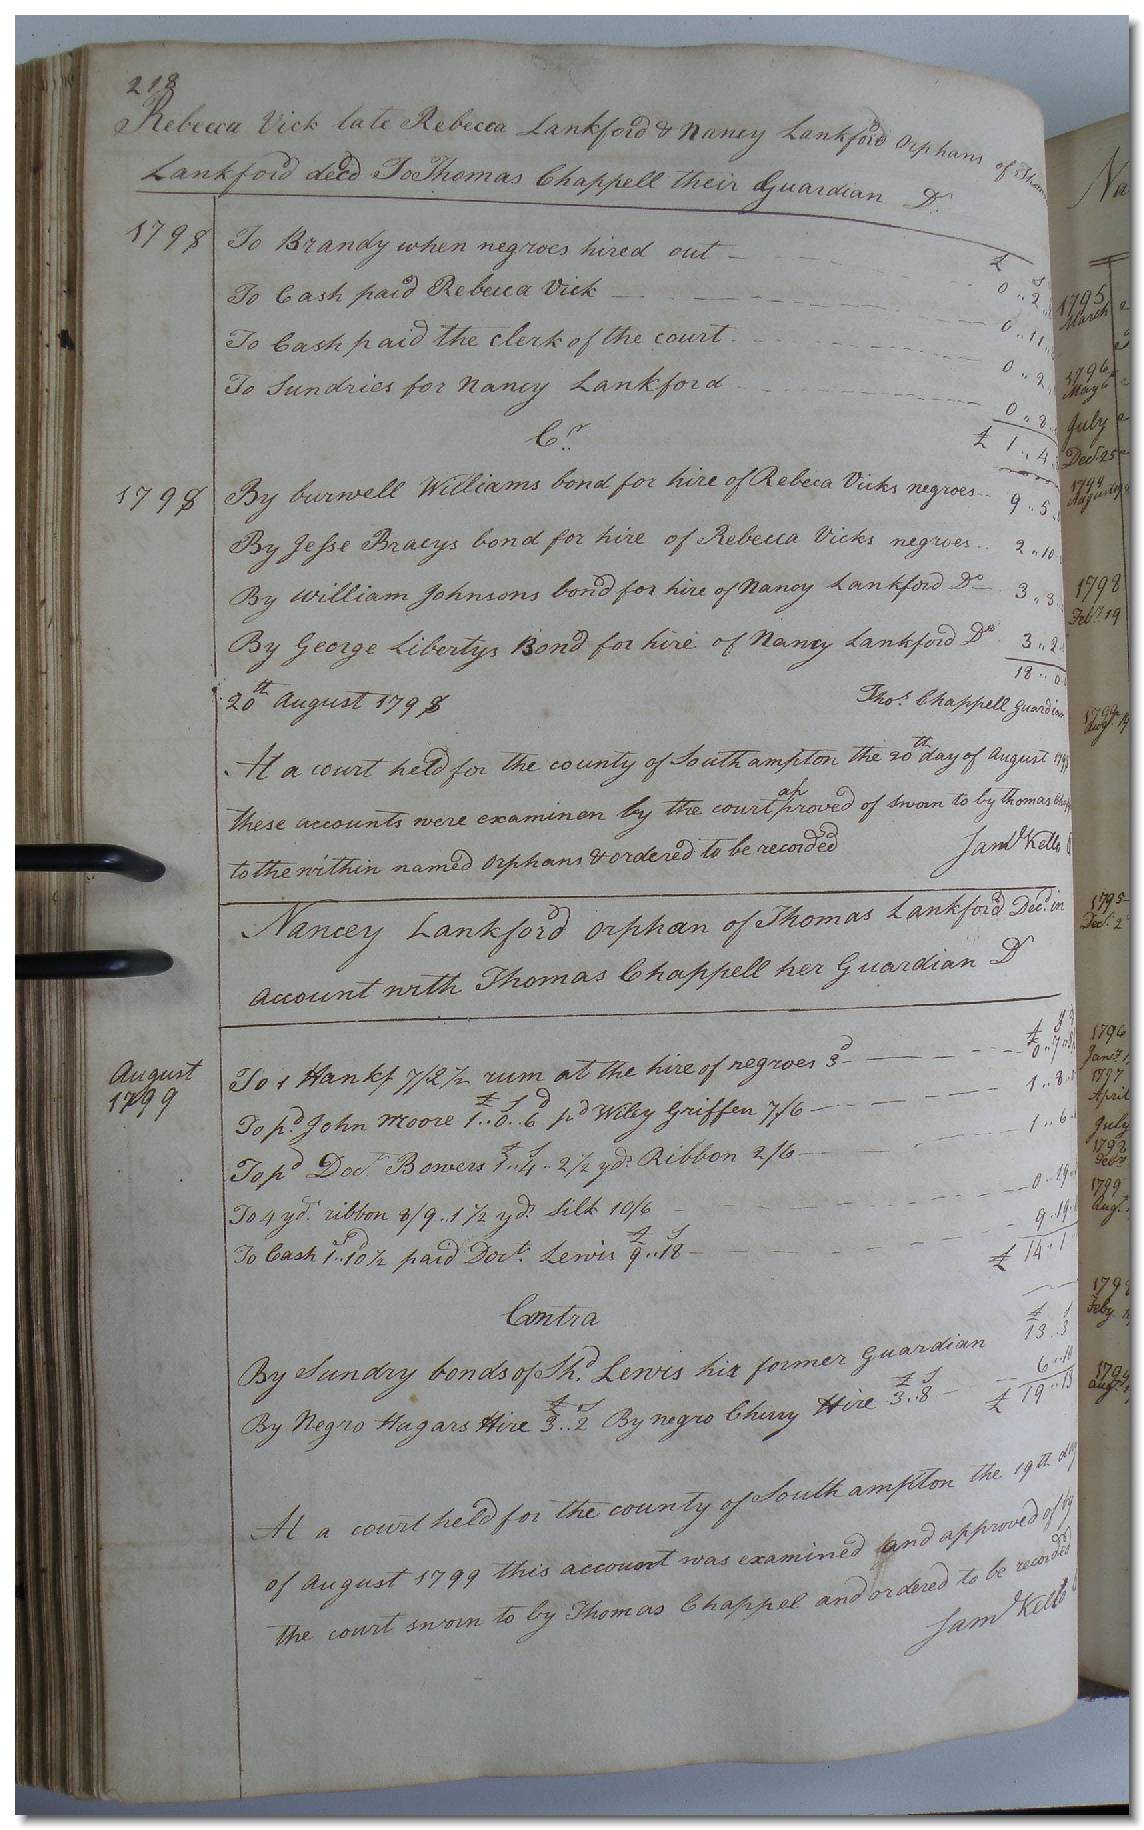 218
Rebecca Vick late Rebecca Lankford & Nancy Lankford Orphans of
Lankford decd To Thomas Chappell their Guardian Dr
£ s
1798 To Brandy when negroes hired out 0 .. 2
To Cash paid Rebecca Vick 0 .. 11
To Cash paid the clerk of the court 0 .. 2
To Sundries for Nancy Lankford 0 .. 8
Cr £ 1 .. 4
1798 By burwell Williams bond for hire of Rebeca Vicks negroes 9 .. 5
By Jesse Bracys bond for hire of Rebecca Vicks negroes 2 .. 10
By William Johnsons bond for hire of Nancy Lankford Do 3 .. 3
By George Libertys Bond for hire of Nancy Lankford Do 3 .. 2
18 .. 0
20th August 1798 Thos. Chappell guardian
At a court held for the county of Southampton the 20th day of August
these accounts were examinen by the court approved of sworn to by thomas
to the within named orphans & ordered to be recorded Saml Kello
Nancey Lankford orphan of Thomas Lankford Decd. in
account with Thomas Chappell her Guardian Dr
£ s
August 1799 To 1 Hankf 7/2½ rum at the hire of negroes 3d 0 .. 7
To pd. John Moore £1 .. 0s .. 6d pd Wiley Griffen 7/6 1 .. 8
To pd Doct Bowers £1 .. 4s .. 2½ yds Ribbon 2/6 1 .. 6
To 4 yds. ribbon 8/9 .. 1½ yds. Silk 10/6 0 .. 19
To Cash 1s .. 10d½ paid Doct. Lewis £9 .. 18s 9 .. 19
£ 14 .. 1
Contra
£ s
By Sundry bonds of Lewis his former guardian 13 .. 3
By Negro Hagars Hire £3 .. 2s By negro Cherry Hire £3 .. 8s 6 .. 10
£ 19 .. 13
At a court held for the county of Southampton the 19th day
of August 1799 this account was examined and approved of by
the court sworn to by Thomas Chappel and ordered to be recorded
Saml Kello
Na
1795
March
1796
May 6
July
Dec. 25
1798
Feby. 19
1795
Dec. 2
1796
1797
April
July
1799
Augt.
Feby.